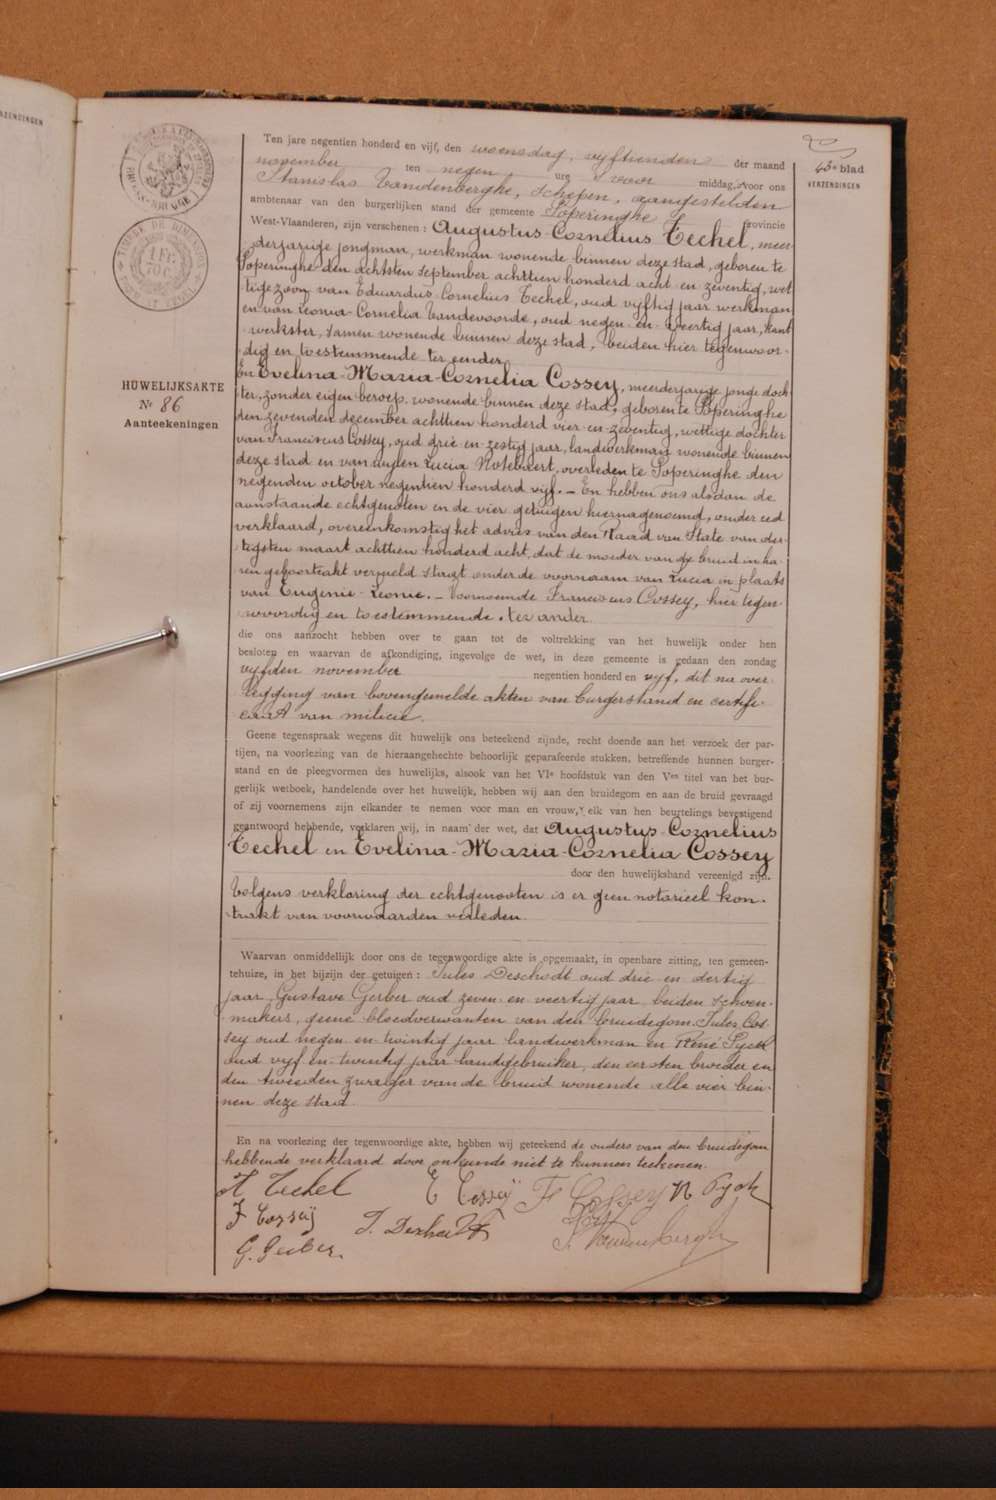 RZENDINGEN
43e blad
VERZENDINGEN
TIMBRE DE DIMENSION
1 FR.
HUWELIJKSAKTE
Nr 86
Aanteekeningen
Ten jare negentien honderd en vijf, den woensdag, vijftienden der maand
november ten negen ure voor middag, voor ons
Stanislas Vandenberghe, schepen, aangestelden
ambtenaar van den burgerlijken stand der gemeente Poperinghe provincie
West-Vlaanderen, zijn verschenen : Augustus-Cornelius Techel, meer-
derjarige jongman, werkman wonende binnen deze stad, geboren te
Poperinghe den achtsten september achttien honderd acht en zeventig, wet-
tige zoon van Eduardus-Cornelius Techel, oud vijftig jaar werkman
en van Leonia-Cornelia Vandevoorde, oud negen-en-veertig jaar, kant-
werkster, samen wonende binnen deze stad, beiden hier tegenwoor-
dig en toestemmende ter eender
En Evelina-Maria-Cornelia Cossey, meerderjarige jonge doch-
ter, zonder eigen beroep, wonende binnen deze stad, geboren te Poperinghe
den zevenden december achttien honderd vier-en-zeventig, wettige dochter
van Franciscus Cossey, oud drie-en-zestig jaar, landwerkman wonende binnen
deze stad en van wijlen Lucia Notebaert, overleden te Poperinghe den
negenden october negentien honderd vijf. — En hebben ons alsdan de
aanstaande echtgenoten en de vier getuigen hiernagenoemd, onder eed
verklaard, overeenkomstig het advies van den Raad van State van der-
tigsten maart achttien honderd acht, dat de moeder van de bruid in ha-
ren geboortakt vermeld staat onder de voornaam van Lucia in plaats
van Eugenie-Leonie. — Voornoemde Franciscus Cossey, hier tegen-
woordig en toestemmende. ter ander
die ons aanzocht hebben over te gaan tot de voltrekking van het huwelijk onder hen
besloten en waarvan de afkondiging, ingevolge de wet, in deze gemeente is gedaan den zondag
vijfden november negentien honderd en vijf, dit na over-
legging van bovengemelde akten van burgerstand en certifi-
caat van milicie.
Geene tegenspraak wegens dit huwelijk ons beteekend zijnde, recht doende aan het verzoek der par-
tijen, na voorlezing van de hieraangehechte behoorlijk geparafeerde stukken, betreffende hunnen burger-
stand en de pleegvormen des huwelijks, alsook van het VIe hoofdstuk van den Ven titel van het bur-
gerlijk wetboek, handelende over het huwelijk, hebben wij aan den bruidegom en aan de bruid gevraagd
of zij voornemens zijn elkander te nemen voor man en vrouw, elk van hen beurtelings bevestigend
geantwoord hebbende, verklaren wij, in naam der wet, dat Augustus-Cornelius
Techel en Evelina-Maria-Cornelia Cossey
door den huwelijksband vereenigd zijn.
Volgens verklaring der echtgenooten is er geen notarieel kon-
trakt van voorwaarden verleden.
Waarvan onmiddellijk door ons de tegenwoordige akte is opgemaakt, in openbare zitting, ten gemeen-
tehuize, in het bijzijn der getuigen : Jules Deschodt oud drie-en-dertig
jaar, Gustave Gerber oud zeven-en-veertig jaar, beiden schoen-
makers, geene bloedverwanten van den bruidegom. Jules Cos-
sey oud negen-en-twintig jaar landwerkman en René Pyck
oud vijf-en-twintig jaar landgebruiker, den eersten broeder en
den tweeden zwager van de bruid wonende alle vier bin-
nen deze stad
En na voorlezing der tegenwoordige akte, hebben wij geteekend de ouders van den bruidegom
hebbende verklaard door onkunde niet te kunnen teekenen.
A Techel E Cosseÿ Fr Cossey R Pyck
J Cosseÿ J. Deschodt S. Vandenberghe
G. Gerber.